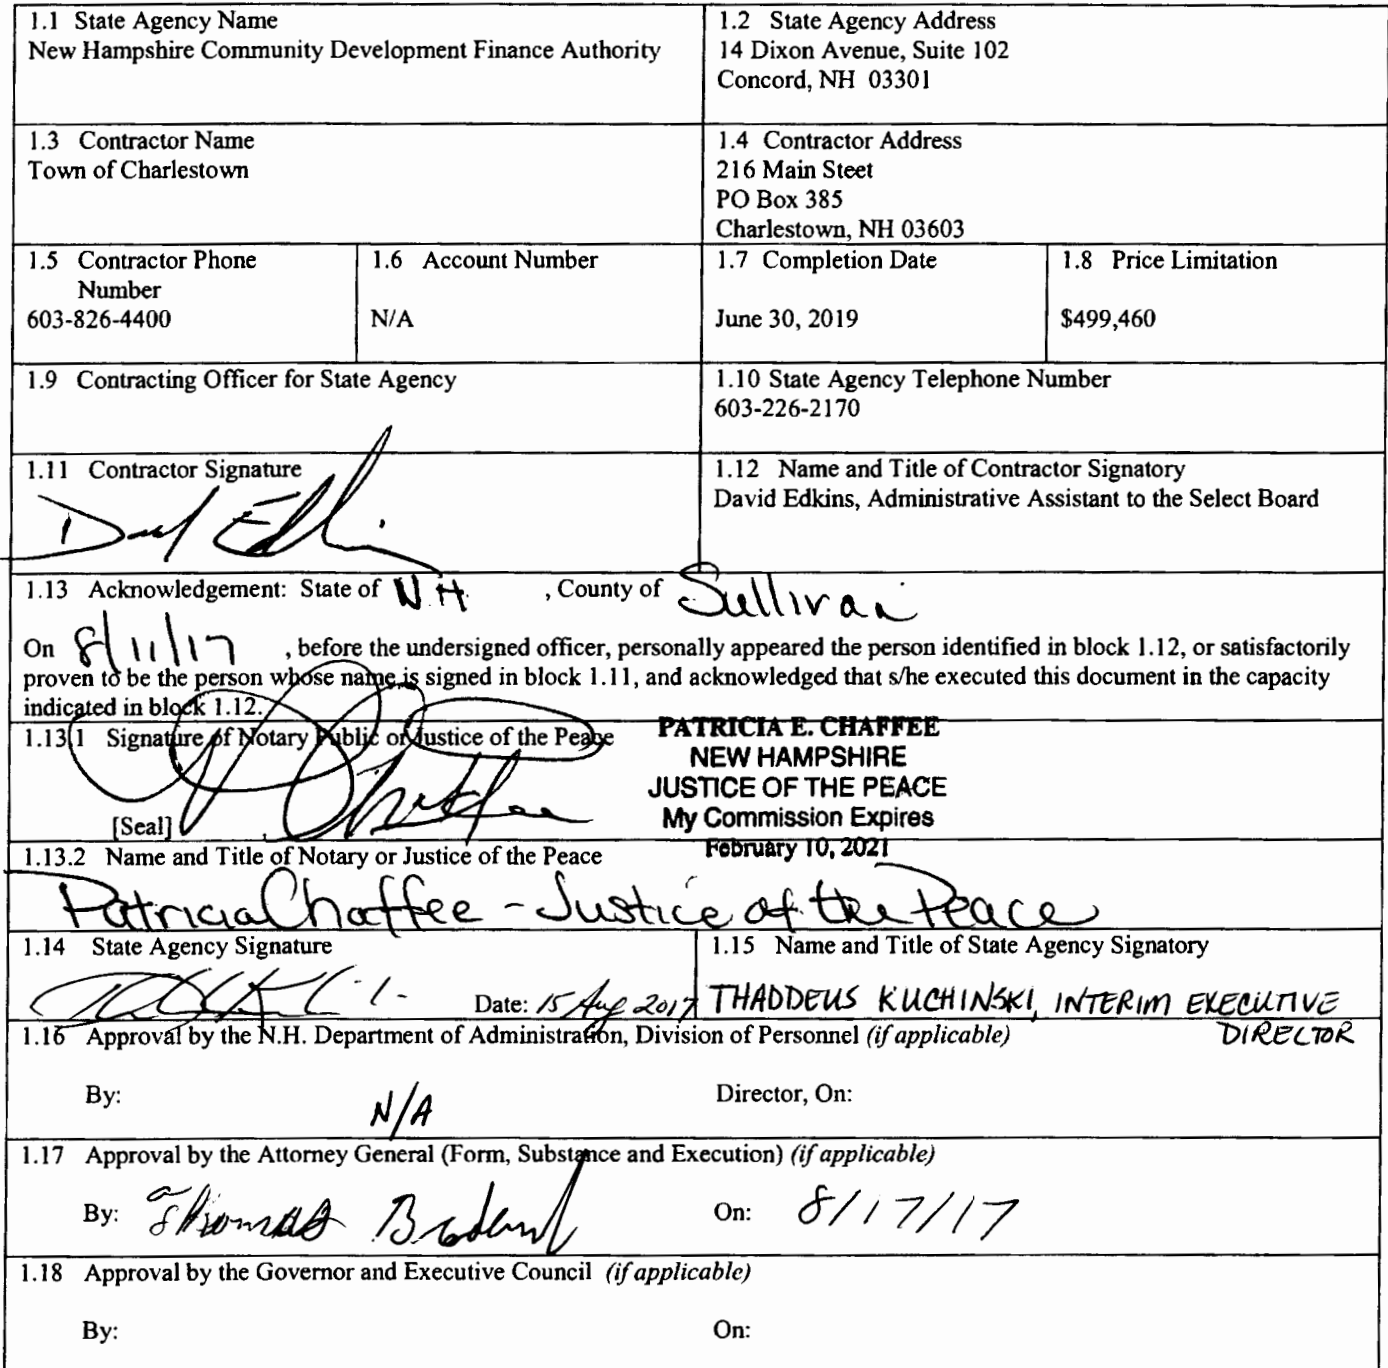 1.1 State Agency Name
New Hampshire Community Development Finance Authority
1.2 State Agency Address
14 Dixon Avenue, Suite 102
Concord, NH 03301
1.3 Contractor Name
Town of Charlestown
1.4 Contractor Address
216 Main Steet
PO Box 385
Charlestown, NH 03603
1.5 Contractor Phone
Number
603-826-4400
1.6 Account Number
N/A
1.7 Completion Date
June 30, 2019
1.8 Price Limitation
$499,460
1.9 Contracting Officer for State Agency
1.10 State Agency Telephone Number
603-226-2170
1.11 Contractor Signature
1.12 Name and Title of Contractor Signatory
David Edkins, Administrative Assistant to the Select Board
1.13 Acknowledgement: State of N.H. , County of Sullivan
On 8/11/17 , before the undersigned officer, personally appeared the person identified in block 1.12, or satisfactorily
proven to be the person whose name is signed in block 1.11, and acknowledged that s/he executed this document in the capacity
indicated in block 1.12.
1.13.1 Signature of Notary Public or Justice of the Peace
[Seal]
PATRICIA E. CHAFFEE
NEW HAMPSHIRE
JUSTICE OF THE PEACE
My Commission Expires
February 10, 2021
1.13.2 Name and Title of Notary or Justice of the Peace
Patricia Chaffee - Justice of the Peace
1.14 State Agency Signature
Date: 15 Aug 2017
1.15 Name and Title of State Agency Signatory
THADDEUS KUCHINSKI, INTERIM EXECUTIVE
DIRECTOR
1.16 Approval by the N.H. Department of Administration, Division of Personnel (if applicable)
By: N/A
Director, On:
1.17 Approval by the Attorney General (Form, Substance and Execution) (if applicable)
By: Thomas
On: 8/17/17
1.18 Approval by the Governor and Executive Council (if applicable)
By:
On: